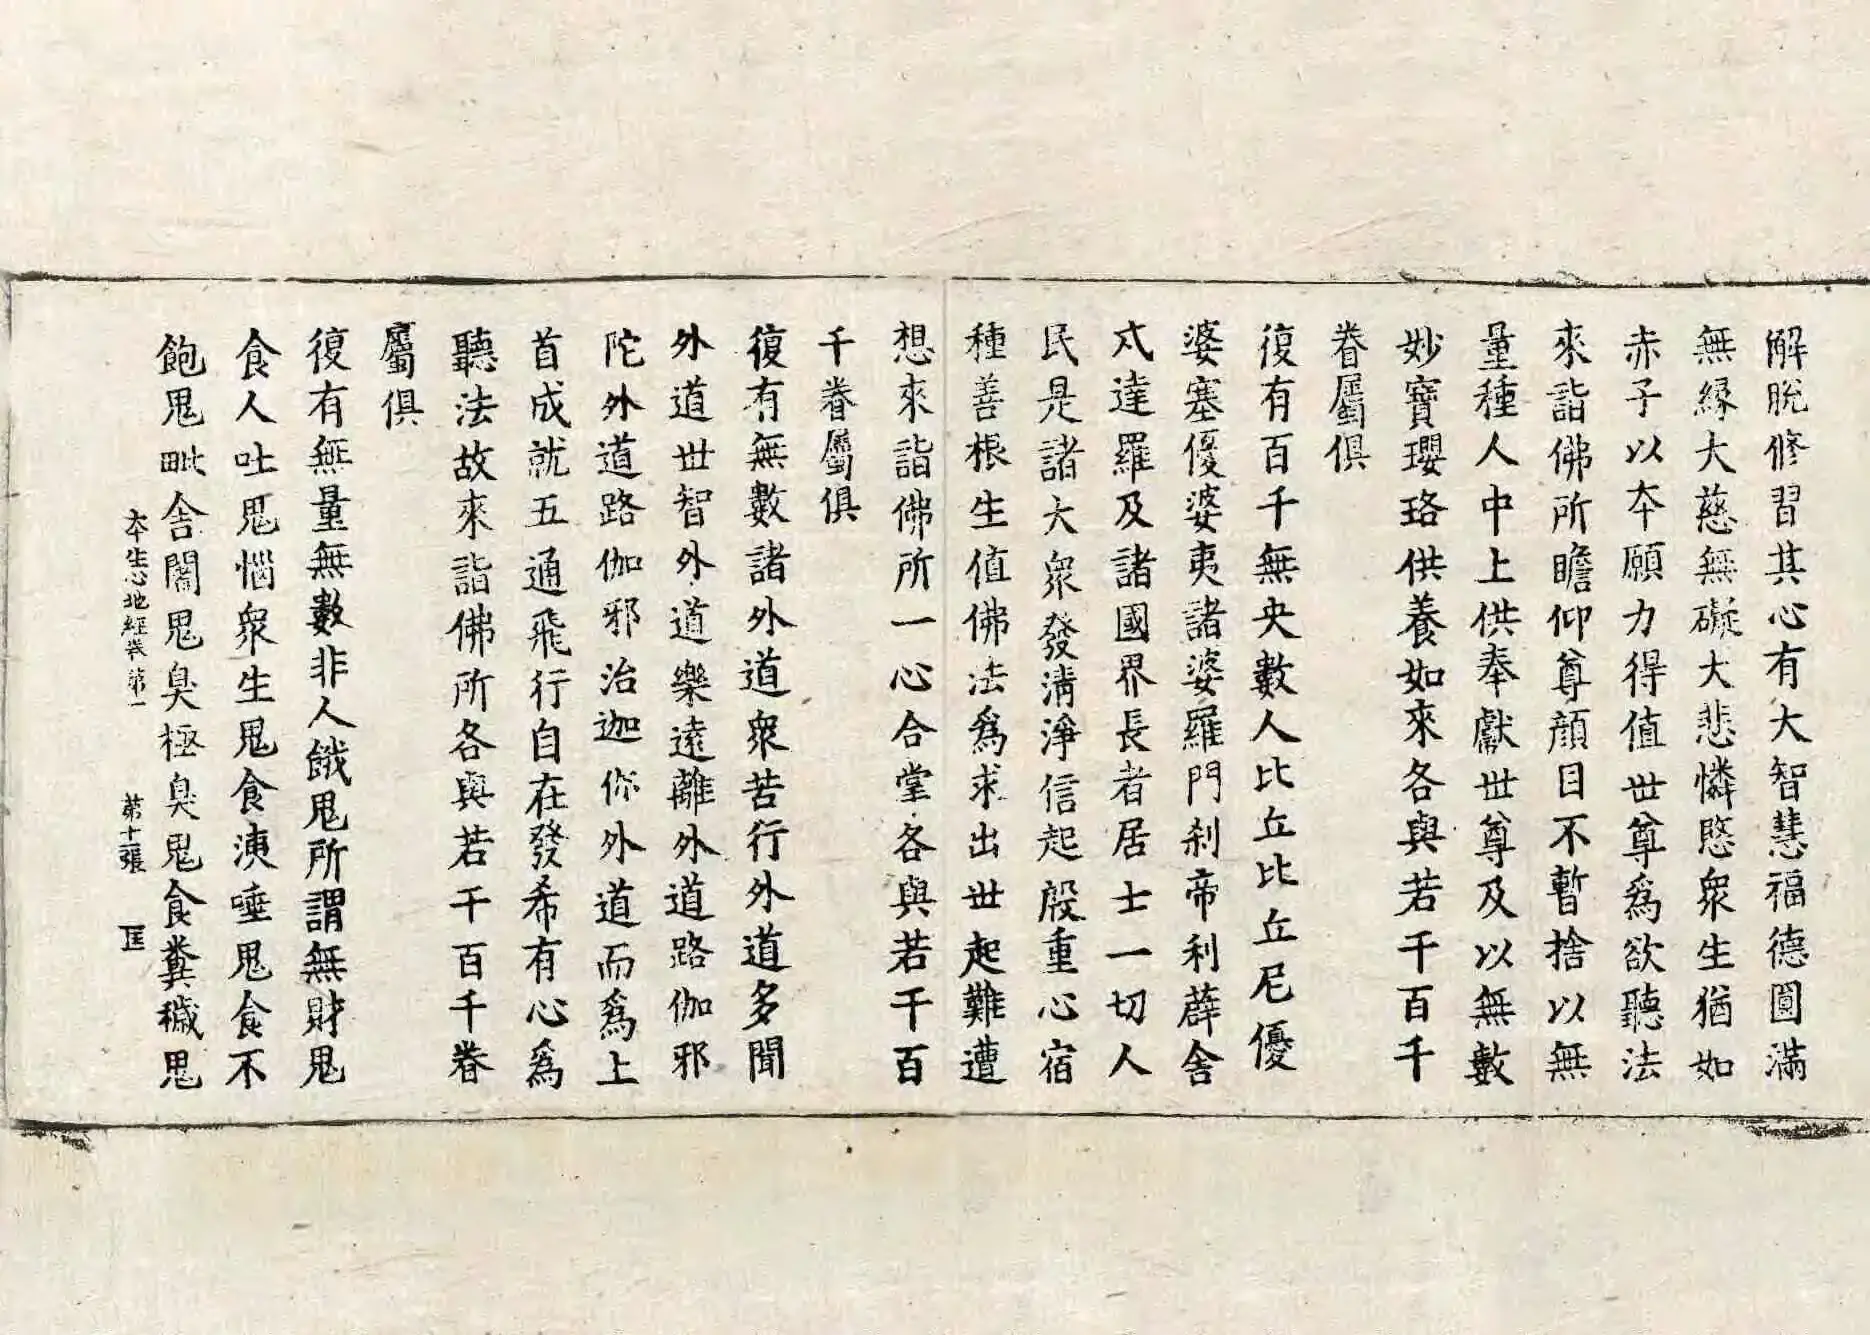 解脫修習其心有大智慧福德圓滿
無緣大慈無礙大悲憐愍衆生猶如
赤子以本願力得值世尊爲欲聽法
來詣佛所瞻仰尊顔目不暫捨以無
量種人中上供奉獻世尊及以無數
妙寶瓔珞供養如來各與若干百千
眷屬俱
復有百千無央數人比丘比丘尼優
婆塞優婆夷諸婆羅門刹帝利薜舍
戍達羅及諸國界長者居士一切人
民是諸大衆發清淨信起殷重心宿
種善根生值佛法爲求出世起難遭
想來詣佛所一心合掌各與若干百
千眷屬俱
復有無數諸外道衆苦行外道多聞
外道世智外道樂遠離外道路伽邪
陀外道路伽邪治迦你外道而爲上
首成就五通飛行自在發希有心爲
聽法故來詣佛所各與若干百千眷
屬俱
復有無量無數非人餓鬼所謂無財鬼
食人吐鬼惱衆生鬼食洟唾鬼食不
飽鬼毗舍闍鬼臭極臭鬼食糞穢鬼
本生心地經卷第一 第十二張 匡